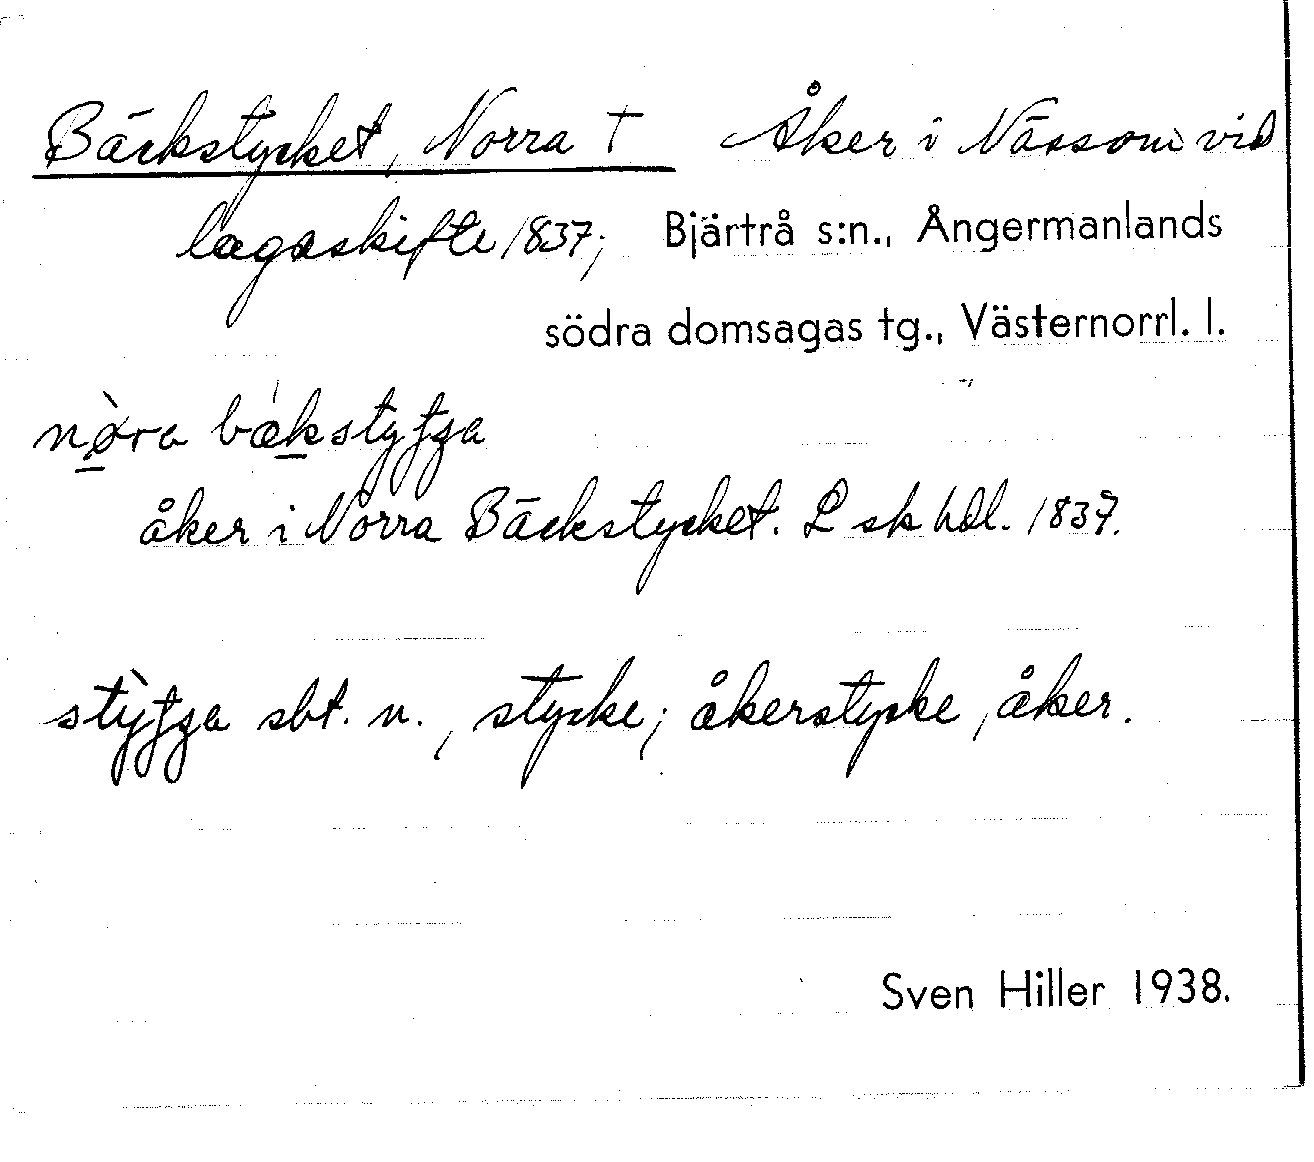 Bäckstycket, Norra † Åker i Nässom vid
lagaskifte 1837; Bjärtrå s:n., Ångermanlands
södra domsagas tg., Västernorrl. l.
nø̀ra
åker i Norra Bäckstycket. L sk hdl. 1837.
sbt. n., stycke; åkerstycke, åker.
Sven Hiller 1938.